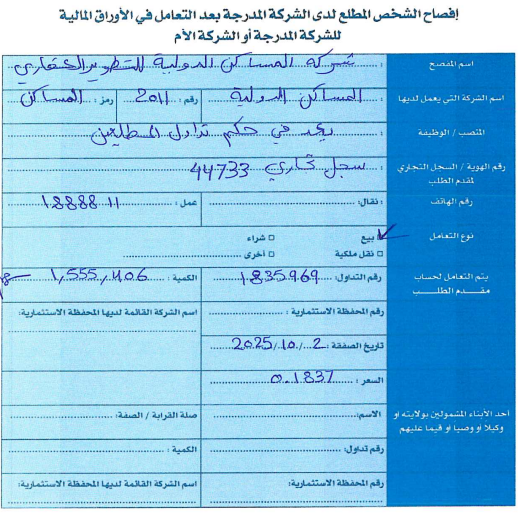 إفصاح الشخص المطلع لدى الشركة المدرجة بعد التعامل في الأوراق المالية
للشركة المدرجة أو الشركة الأم
اسم المفصح : شركة المساكن الدولية للتطوير العقاري
اسم الشركة التي يعمل لديها : المساكن الدولية رقم : 2011 رمز : المساكن
المنصب / الوظيفة : يعد في حكم تداول المطلعين
رقم الهوية / السجل التجاري لمقدم الطلب : سجل تجاري 44733
رقم الهاتف : نقال: عمل : 1888811
نوع التعامل ☑ بيع □ شراء
□ نقل ملكية □ أخرى
يتم التعامل لحساب مقدم الطلب رقم التداول: 1835969 الكمية : 1,555,406
رقم المحفظة الاستثمارية : اسم الشركة القائمة لديها المحفظة الاستثمارية:
تاريخ الصفقة : 2025/10/2
السعر : 0.1837
أحد الأبناء المشمولين بولايته أو وكيلا أو وصيا أو قيما عليهم الاسم: صلة القرابة / الصفة:
رقم تداول: الكمية :
رقم المحفظة الاستثمارية: اسم الشركة القائمة لديها المحفظة الاستثمارية: